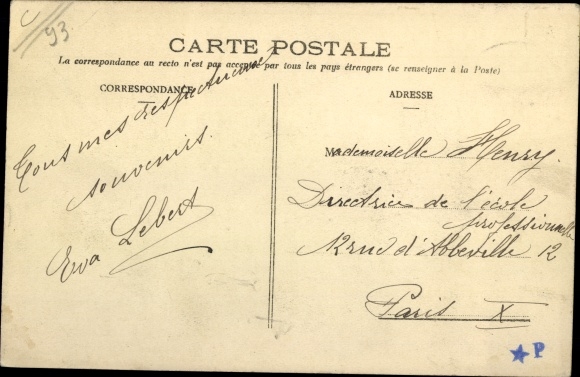 93
CARTE POSTALE
La correspondance au recto n'est pas acceptée par tous les pays étrangers (se renseigner à la Poste)
CORRESPONDANCE
Tous mes respectueux
souvenirs.
Eva Lebert
ADRESSE
Mademoiselle Henry.
Directrice de l'école
professionnelle
12 rue d'Abbeville 12
Paris X
★P